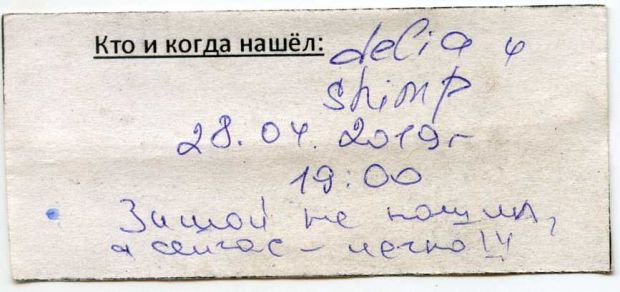 Кто и когда нашёл: delia и
shimp
28.04.2019г
19:00
Зимой не нашли,
а сейчас - легко!!!